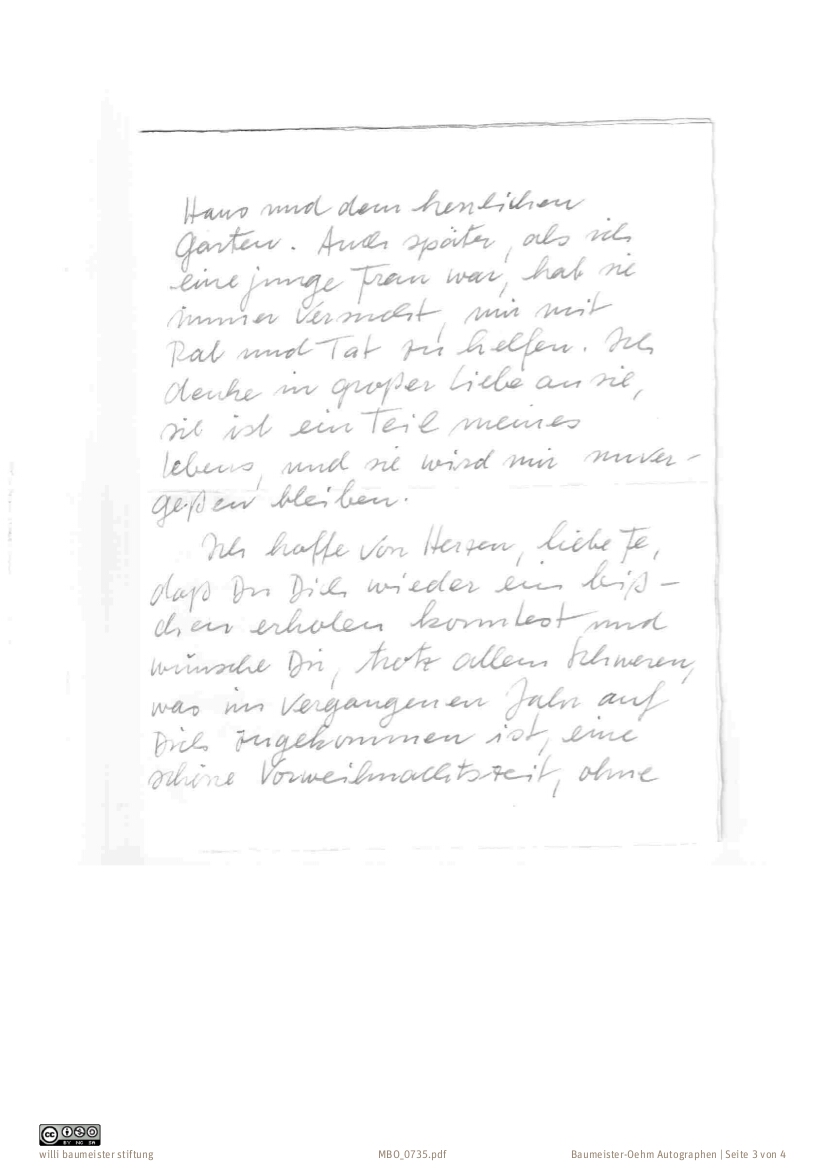 Haus und dem herrlichen
Garten. Auch später, als ich
eine junge Frau war, hat sie
immer versucht, mir mit
Rat und Tat zu helfen. Ich
denke in großer Liebe an sie,
sie ist ein Teil meines
Lebens, und sie wird mir unver-
geßen bleiben.
Ich hoffe von Herzen, liebe Fe,
daß Du Dich wieder ein biß-
chen erholen konntest und
wünsche Dir, trotz allem Schweren,
was im vergangenen Jahr auf
Dich zugekommen ist, eine
schöne Vorweihnachtszeit, ohne
cc BY NC SA
willi baumeister stiftung
MBO_0735.pdf
Baumeister-Oehm Autographen | Seite 3 von 4